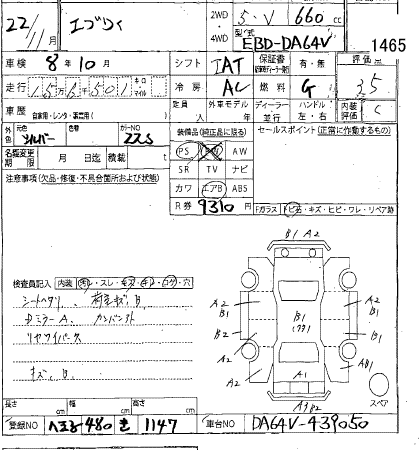 22/11 月 エブリイ 2WD 4WD 5・V 660 cc
型/式 EBD-DA64V 1465
車検 8年10月 シフト IAT 保証書 有・無 評価点
走行 156501 キロ マイル 冷房 AC 燃料 G 3.5
車歴 自家用・レンタ・事業用( ) 定員 人 外車モデル 年 ディーラー 並行 ハンドル 左・右 内装評価 C
外色 元色 シルバー カラーNO Z2S 装備品(純正品に限る) セールスポイント(正常に作動するもの)
名義変更期限 月 日迄 積載 t PS AW
SR TV ナビ
注意事項(欠品・修復・不具合箇所および状態) カワ エアB ABS
R券 9310円 Fガラス トビ石・キズ・ヒビ・ワレ・リペア跡
B1 A2
検査員記入 内装
A2 B1 A2 B1
シートヘタリ 荷室キズ B
B2 B1 B1
Dミラー A
A2 A2 AB1
キズ、B A1
A3 B2 スペア
長さ cm 幅 cm 高さ cm
登録NO 八王子 480 き 1147 車台NO DA64V-439050